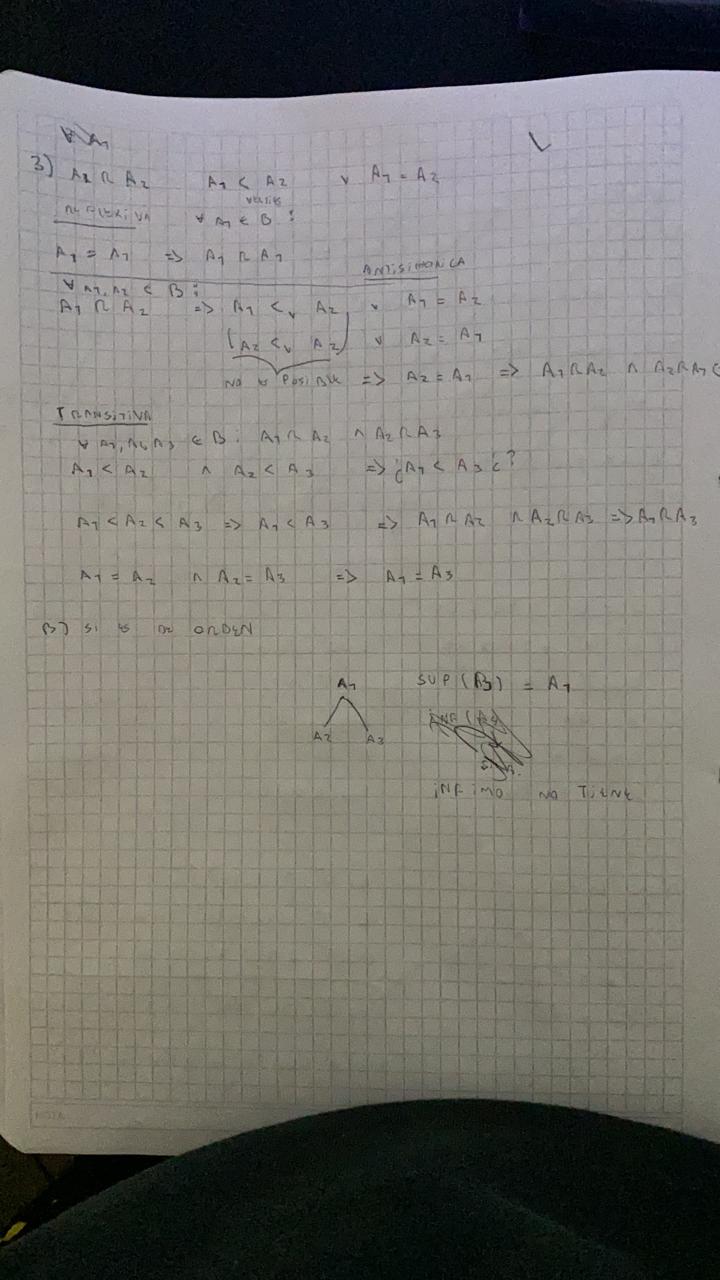 ∀ A1
3) A1 R A2 A1 < A2 ∨ A1 = A2
REFLEXIVA ∀ A1 ∈ B :
A1 = A1 => A1 R A1
ANTISIMETRICA
∀ A1, A2 ∈ B :
A1 R A2 => A1 <v A2 ∨ A1 = A2
(A2 <v A2) ∨ A2 = A1
NO ES POSIBLE => A2 = A1 => A1 R A2 ∧ A2 R A1
TRANSITIVA
∀ A1, A2, A3 ∈ B : A1 R A2 ∧ A2 R A3
A1 < A2 ∧ A2 < A3 => ¿A1 < A3 ¿?
A1 < A2 < A3 => A1 < A3 => A1 R A2 ∧ A2 R A3 => A1 R A3
A1 = A2 ∧ A2 = A3 => A1 = A3
B) SI ES DE ORDEN
A1 SUP (B) = A1
A2 A3
INFIMO NO TIENE